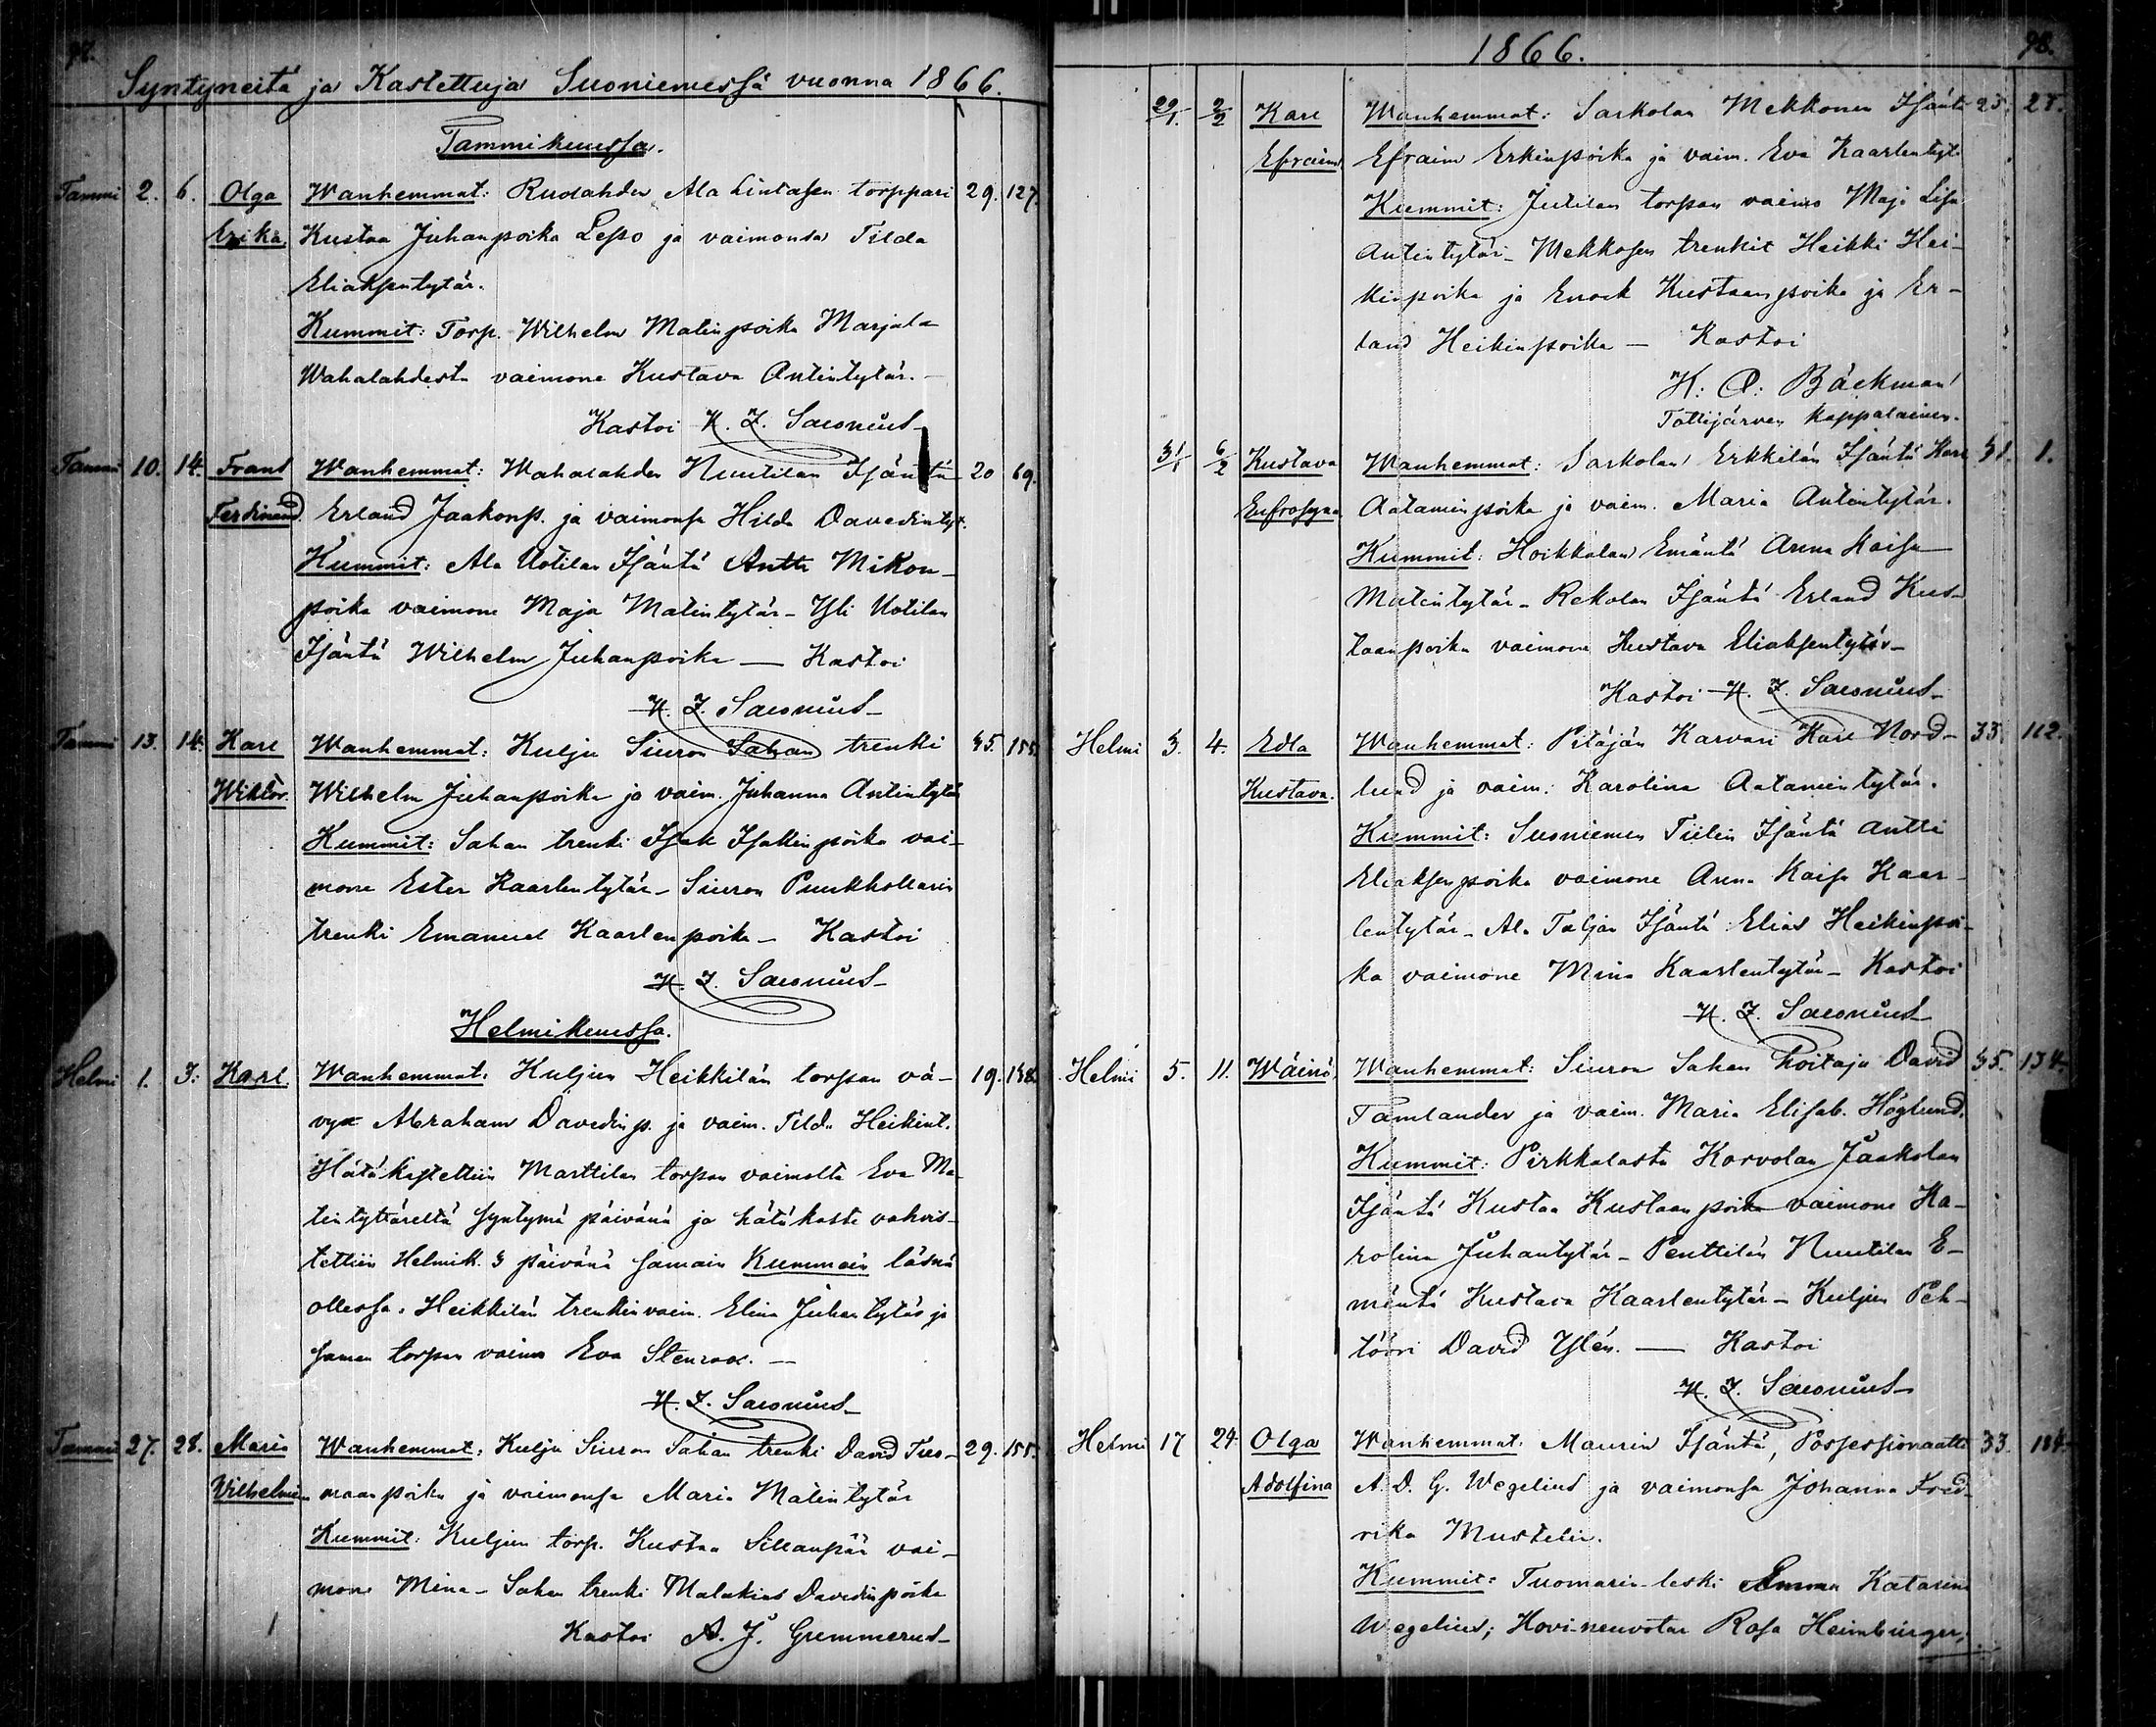 97.
Syntyneitä ja Kastettuja Suoniemessä vuonna 1866.
Tammikuussa.
Tammi 2. 6. Olga Wanhemmat: Ruolahden Ala Lintasen torppari 29. 127.
Erika. Kustaa Juhanpoika Lepo ja vaimonsa Tilda
Eliaksentytär.
Kummit: Torp. Wilhelm Matinpoika Marjala
Wahalahdesta vaimone Kustava Antintytär. —
Kastoi K. F. Saxonius
Tammi 10. 14. Frans Wanhemmat: Wahalahden Nuutilan Isäntä 20 69.
Ferdinand. Erland Jaakonp. ja vaimonsa Hilda Davedintyt.
Kummit: Ala Uotilan Isäntä Antti Mikon-
poika vaimone Maja Matintytär – Yli Uotilan
Isäntä Wilhelm Juhanpoika — Kastoi
K. F. Saxonius
Tammi 13. 14. Karl Wanhemmat: Kulju Siuron Sahan trenki 35. 155.
Wiktor. Wilhelm Juhanpoika ja vaim. Juhanna Antintytär
Kummit: Sahan trenki Isak Isakinpoika vai-
mone Ester Kaarlentytär – Siuron Puukhollarin
trenki Emanuel Kaarlenpoika – Kastoi
K. F. Saxonius
Helmikuussa.
Helmi 1. 3. Karl. Wanhemmat: Kuljun Heikkilän torpan vä- 19. 138.
vyn Abraham Davedinp. ja vaim. Tilda Heikint.
Hätäkastettiin Marttilan torpan vaimolta Eva Ma-
tintyttäreltä syntymä päivänä ja hätäkaste vahvis-
tettiin Helmik. 3 päivänä samain Kummein läsnä
ollessa. Heikkilän trenkin vaim. Elina Juhantytär ja
saman torpan vaimo Eva Stenroos. —
K. F. Saxonius
Tammi 27. 28. Maria Wanhemmat: Kulju Siuron Sahan trenki David Tuo- 29. 155.
Wilhelmin maanpoika ja vaimonsa Maria Matintytär
Kummit: Kuljun torp. Kustaa Sillanpää vai-
mone Mina – Sahan trenki Malakias Davedinpoika
Kastoi A. J. Gummerus
1866. 98.
29/1. 2/2 Karl Wanhemmat: Sarkolan Mekkonen Isänt 25. 25.
Efraim. Efraim Erkinpoika ja vaim. Eva Kaarlentyt
Kummit: Jutilan torpan vaimo Maja Lisa
Antintytär – Mekkosen trenkit Heikki Hei-
kinpoika ja Enock Kustaanpoika ja Er-
land Heikinpoika — Kastoi
K: O: Bäckman
Tottijärven kappalainen.
31/1 6/2 Kustava Wanhemmat: Sarkolan Erkkilän Isäntä Karl 31. 1.
Eufrosyna. Aataminpoika ja vaim. Maria Antintytär.
Kummit: Hoikkalan Emäntä Anna Kaisa
Matintytär – Rekolan Isäntä Erland Kus-
taanpoika vaimone Kustava Eliaksentytär –
Kastoi K. F. Saxonius
Helmi 3. 4. Edla Wanhemmat: Pitäjän Karvari Karl Nord- 33. 112.
Kustava. lund ja vaim: Karolina Aatamintytär.
Kummit: Suoniemen Tiilin Isäntä Antti
Eliaksenpoika vaimone Anna Kaisa Kaar-
lentytär – Ala Taljan Isäntä Elias Heikinpoi-
ka vaimone Mina Kaarlentytär – Kastoi
K. F. Saxonius
Helmi 5. 11. Wäinö. Wanhemmat: Siuron Sahan hoitaja David 35. 154.
Tamlander ja vaim. Maria Elisab. Höglund.
Kummit: Pirkkalasta Korvolan Jaakolan
Isäntä Kustaa Kustaanpoika vaimone Ka-
rolina Juhantytär – Penttilän Nuutilan E-
mäntä Kustava Kaarlentytär – Kuljun Peh-
tööri David Yslén. — Kastoi
K. F. Saxonius
Helmi 17 24. Olga Wanhemmat: Maurin Isäntä, Possessionaatti 33. 184.
Adolfina A. D. G. Wegelius ja vaimonsa Johanna Fred-
rika Mustelin.
Kummit: Tuomarin-leski Emma Katarina
Wegelius; Hovi-neuvotar Rosa Heimbürger,